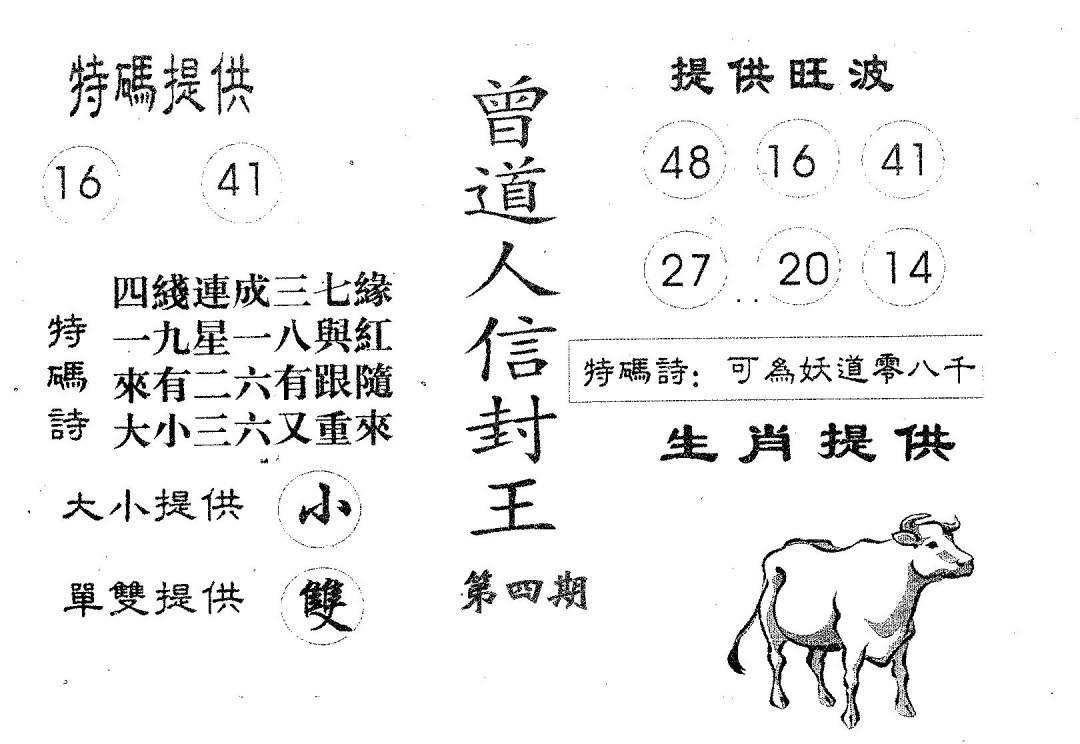 特碼提供
16 41
特碼詩
四綫連成三七緣
一九星一八與紅
來有二六有跟隨
大小三六又重來
大小提供 小
單雙提供 雙
曾道人信封王
第四期
提供旺波
48 16 41
27 20 14
特碼詩：可為妖道零八千
生肖提供